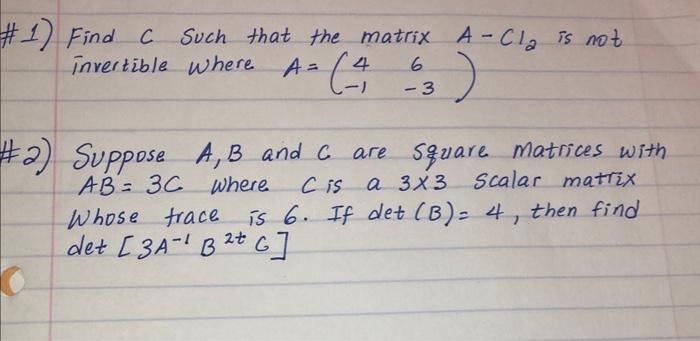 #1) Find C Such that the matrix A - CI₂ is not
invertible where A = ( 4 6
-1 -3 )
#2) Suppose A, B and C are square matrices with
AB = 3C where C is a 3x3 Scalar matrix
Whose trace is 6. If det (B) = 4, then find
det [3A⁻¹ B²ᵗ C]